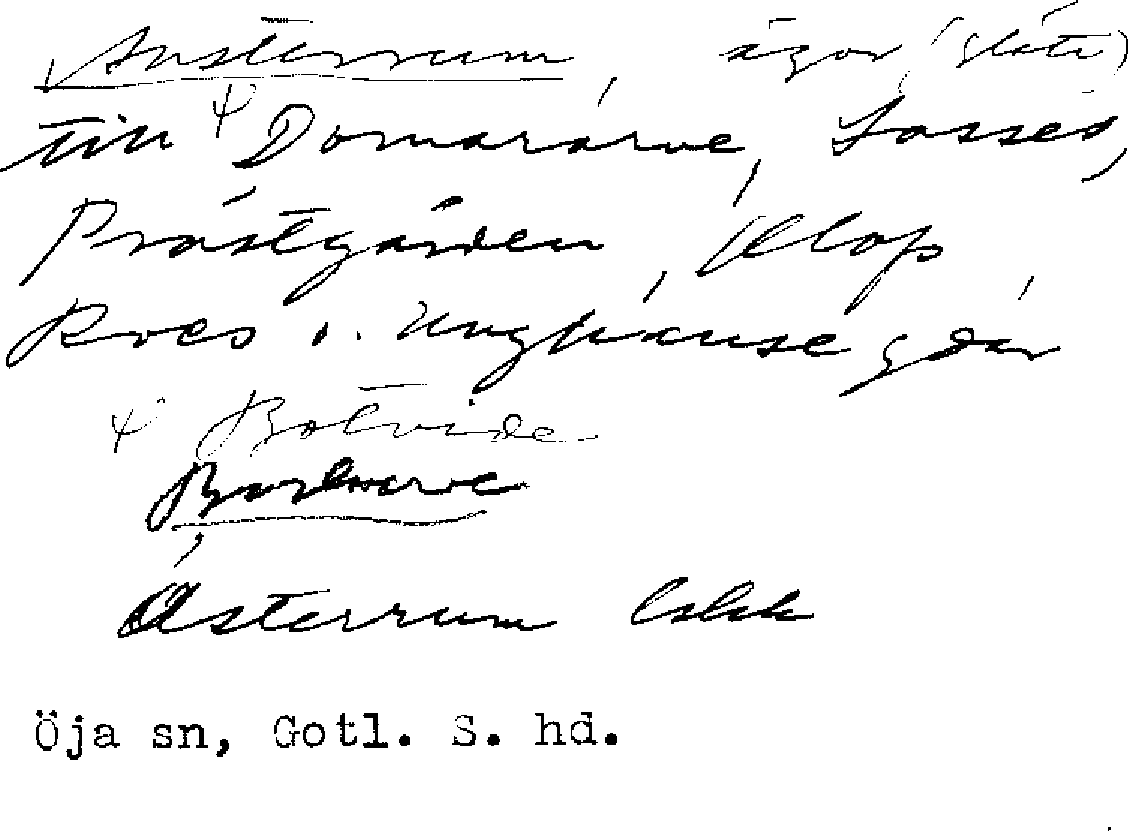 Austerrum, ägor (slåtr)
till ψ Domarärve, Sosses,
Prästgården, Klop
Roes o. Unghanse gdar
ψ Botvide
Burkvarve
Österrum lskk
Öja sn, Gotl. S. hd.